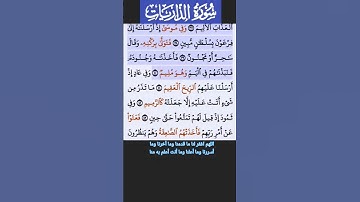 سُورَةُ الذَّارِيَات
الْعَذَابَ الْأَلِيمَ ۝ وَفِي مُوسَىٰ إِذْ أَرْسَلْنَاهُ إِلَىٰ
فِرْعَوْنَ بِسُلْطَانٍ مُّبِينٍ ۝ فَتَوَلَّىٰ بِرُكْنِهِ وَقَالَ
سَاحِرٌ أَوْ مَجْنُونٌ ۝ فَأَخَذْنَاهُ وَجُنُودَهُ
فَنَبَذْنَاهُمْ فِي الْيَمِّ وَهُوَ مُلِيمٌ ۝ وَفِي عَادٍ إِذْ
أَرْسَلْنَا عَلَيْهِمُ الرِّيحَ الْعَقِيمَ ۝ مَا تَذَرُ مِن
شَيْءٍ أَتَتْ عَلَيْهِ إِلَّا جَعَلَتْهُ كَالرَّمِيمِ ۝ وَفِي
ثَمُودَ إِذْ قِيلَ لَهُمْ تَمَتَّعُوا حَتَّىٰ حِينٍ ۝ فَعَتَوْا
عَنْ أَمْرِ رَبِّهِمْ فَأَخَذَتْهُمُ الصَّاعِقَةُ وَهُمْ يَنظُرُونَ
اللهم اغفر لنا ما قدمنا وما أخرنا وما
أسررنا وما أعلنا وما أنت أعلم به منا